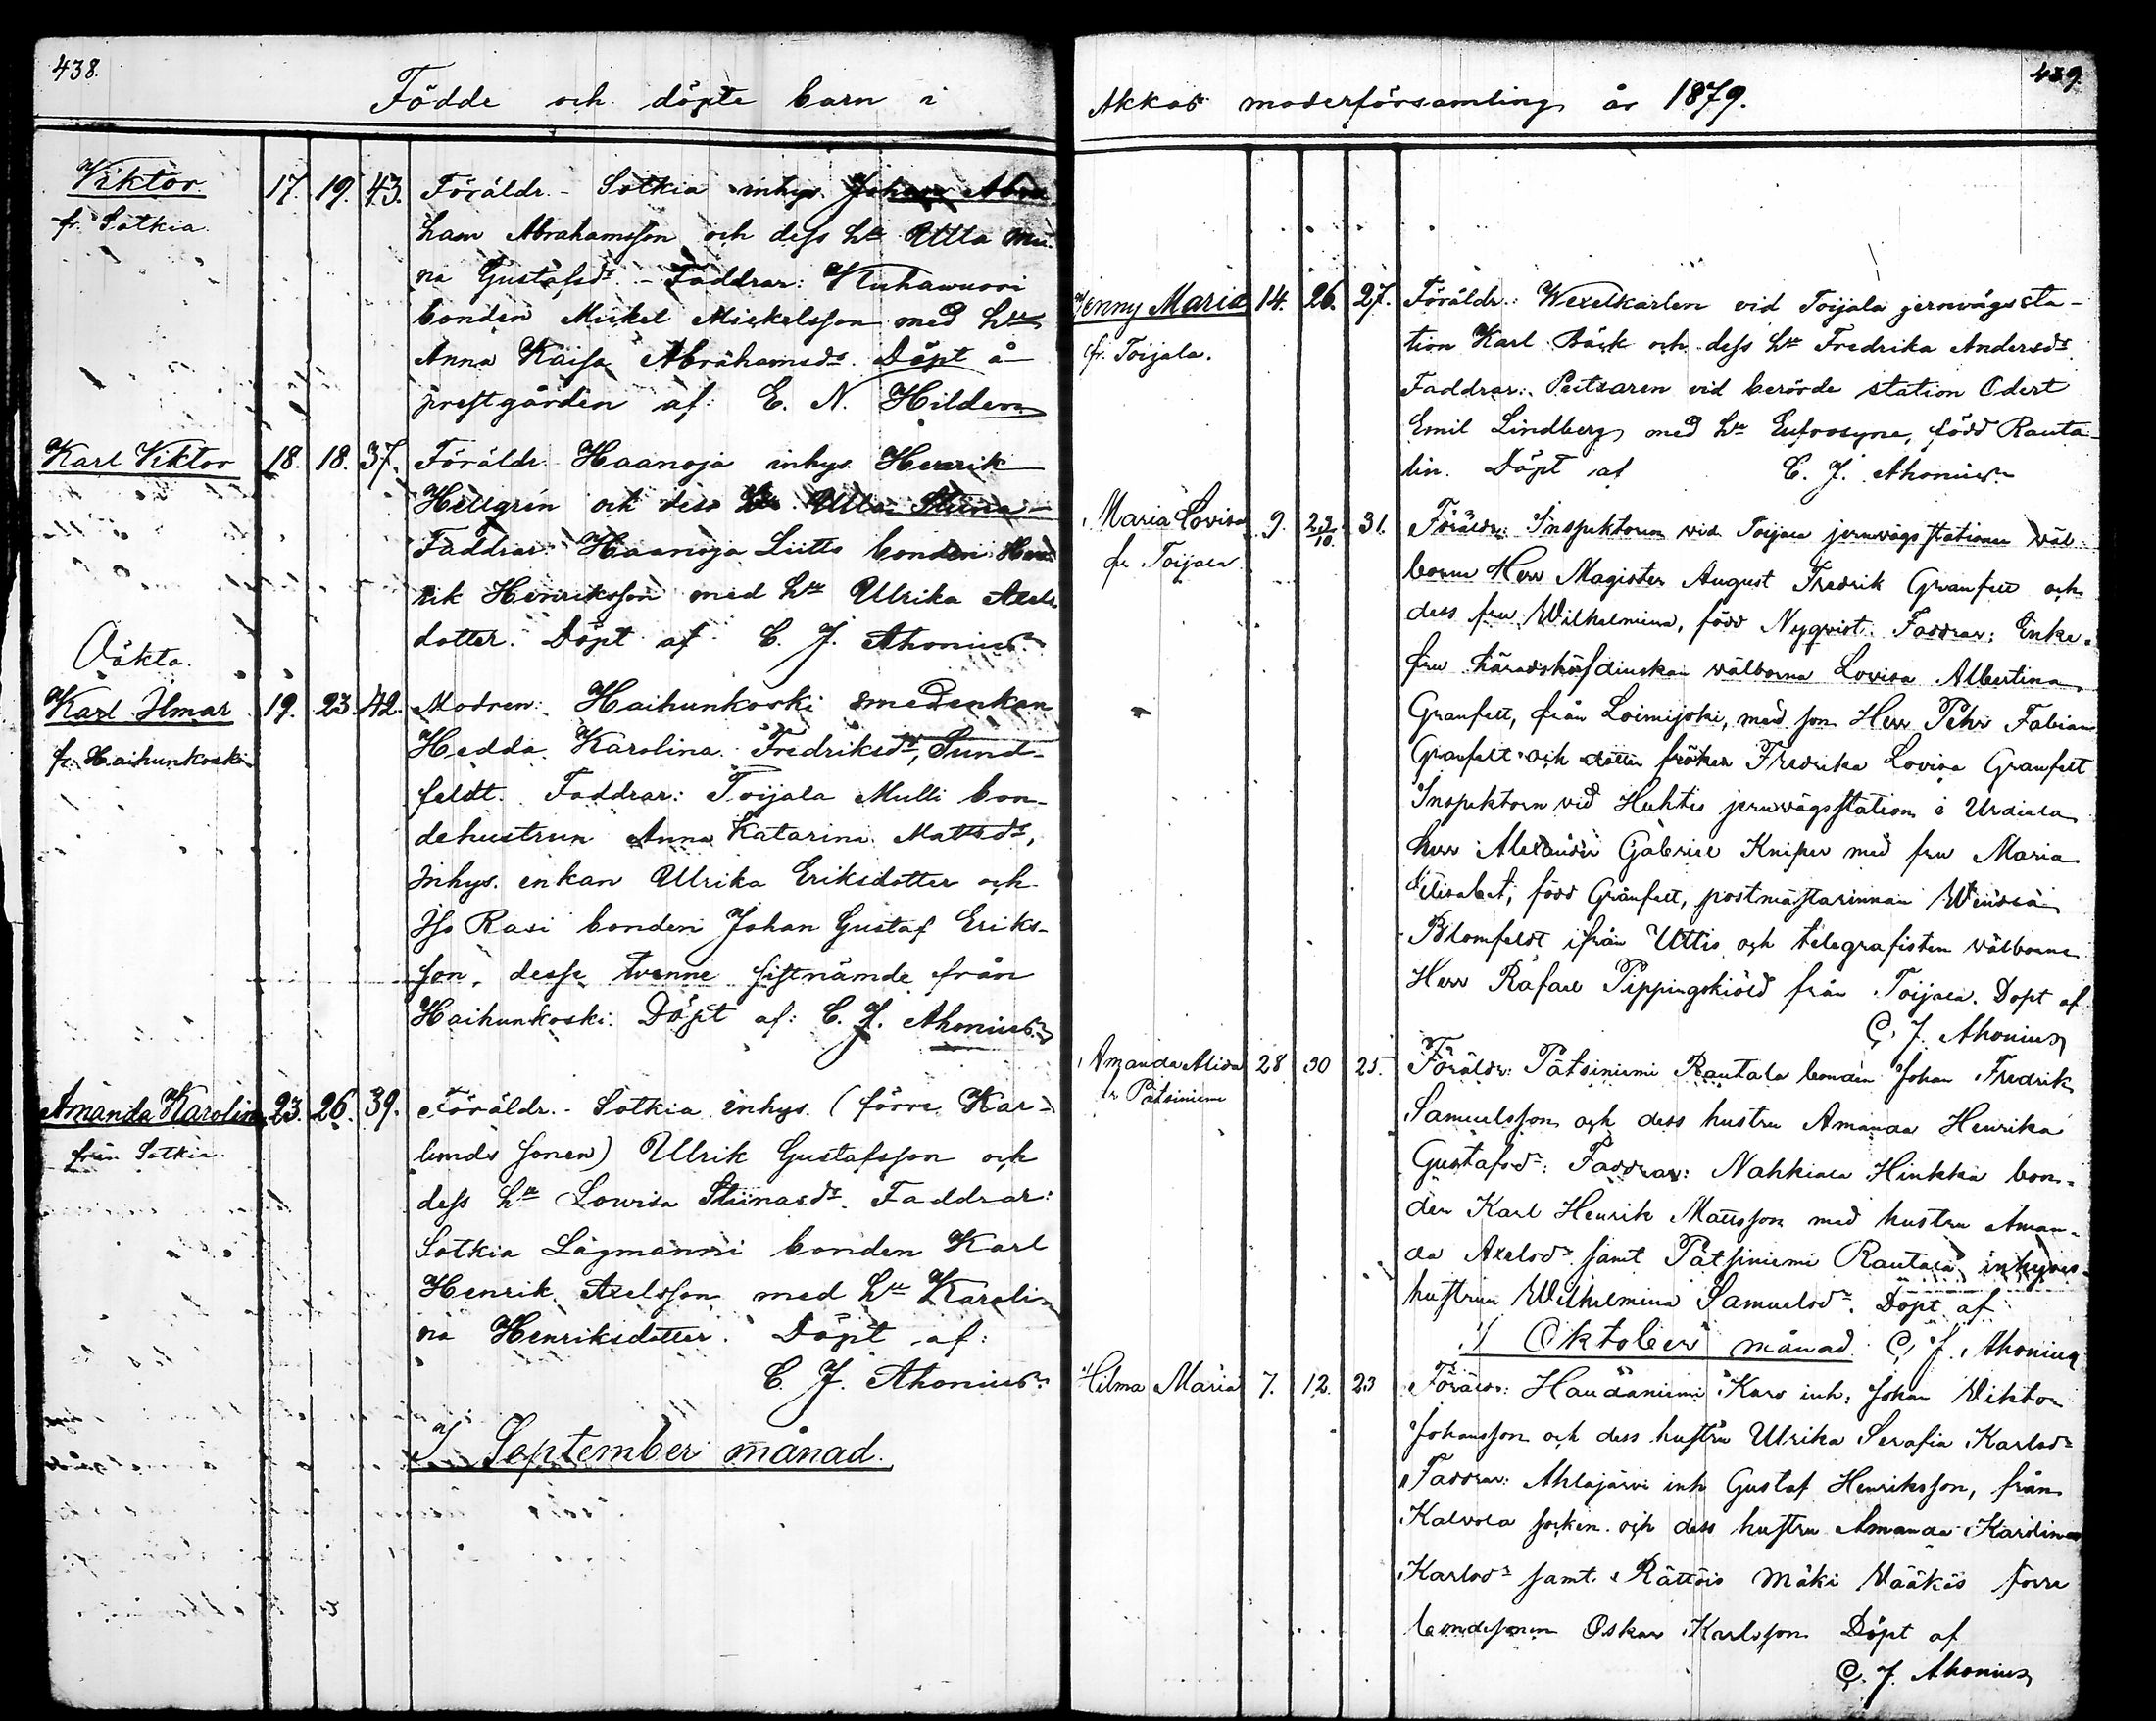 438.
Födde och döpte barn i
Viktor
fr. Sotkia
17. 19. 43.
Föräldr. - Sotkia inhys. Johan Abra
ham Abrahamsson och dess hu Ulla
na Gustafsdr. - Faddrar: Kuhawuori
bonden Mickel Mickelsson med hu
Anna Kaisa Abrahamsdr. Döpt å
prestgården af: E. N. Hilden
Karl Viktor
18. 18. 37.
Föräldr. Haanoja inhys. Henrik
Hellgrén och dess hu. Ulla Stiina
Faddrar: Haanoja Liitto bonden Hen
rik Henriksson med hu Ulrika Axels
dotter. Döpt af C. J. Ahonius.
Oäkta.
Karl Ilmar
fr. Haihunkoski
19. 23. 42.
Modren: Haihunkoski smedenkan
Hedda Karolina Fredriksdr, Sund-
feldt. Faddrar: Toijala Mulli bon-
dehustrun Anna Katarina Mattsdr,
inhys. enkan Ulrika Eriksdotter och
Iso Rasi bonden Johan Gustaf Eriks-
son, desse tvenne sistnämde från
Haihunkoski. Döpt af: C. J. Ahonius.
Amanda Karolina
från Sotkia.
23. 26. 39.
Föräldr. - Sotkia inhys. (förre Kar-
lunds sonen) Ulrik Gustafsson och
dess hu Lowisa Stiinasdr. Faddrar:
Sotkia Lagmanni bonden Karl
Henrik Axelsson med hu Karoli-
na Henriksdotter. Döpt af:
C. J. Ahonius.
I September månad.
439.
Akkas moderförsamling år 1879.
Jenny Maria
fr. Toijala.
14. 26. 27.
Föräldr.: Wexelkarlen vid Toijala jernvägssta-
tion Karl Bäck och dess hu Fredrika Andersdr
Faddrar: Putsaren vid berörde station Odert
Emil Lindberg med hu Eufrosyne, född Rauta-
lin. Döpt af C. J. Ahonius.
Maria Lovisa
fr Toijala
9. 23/10. 31.
Föräldr: Inspektoren vid Toijala jernvägsstation wäl-
borne Herr Magister August Fredrik Granfelt och
dess fru Wilhelmina, född Nyqvist. Faddrar: Enke-
fru häradshöfdinskan wälborna Lovisa Albertina
Granfelt, från Loimijoki, med son Herr Pehr Fabian
Granfelt och dotter fröken Fredrika Lovisa Granfelt
Inspektorn vid Huhtis jernvägsstation i Urdiala
herr Alexander Gabriel Kniper med fru Maria
Elisabet, född Granfelt, postmästarinnan
Blomfeldt ifrån Uttis och telegrafisten wälborne
Herr Rafael Pippingskiöld från Toijala. Döpt af
C. J. Ahonius
Amanda Alida
fr Pätsiniemi
28 30 25.
Föräldr: Pätsiniemi Rautala bonden Johan Fredrik
Samuelsson och dess hustru Amanda Henrika
Gustafsdr. Faddrar: Nahkiala Hinkka bon-
den Karl Henrik Mattsson med hustru Aman-
da Axelsdr samt Pätsiniemi Rautala inhyses-
hustrun Wilhelmina Samuelsdr. Döpt af
C. J. Ahonius
I Oktober månad.
Hilma Maria
7. 12. 23
Föräldr: Haudaniemi Karo inh: Johan Viktor
Johansson och dess hustru Ulrika Serafia Karlsdr
Faddrar: Ahlajärvi inh Gustaf Henriksson, från
Kalvola socken och dess hustru Amanda Karolina
Karlsdr samt Rättöis Mäki Vääkäs förre
bondesonen Oskar Karlsson Döpt af
C. J. Ahonius